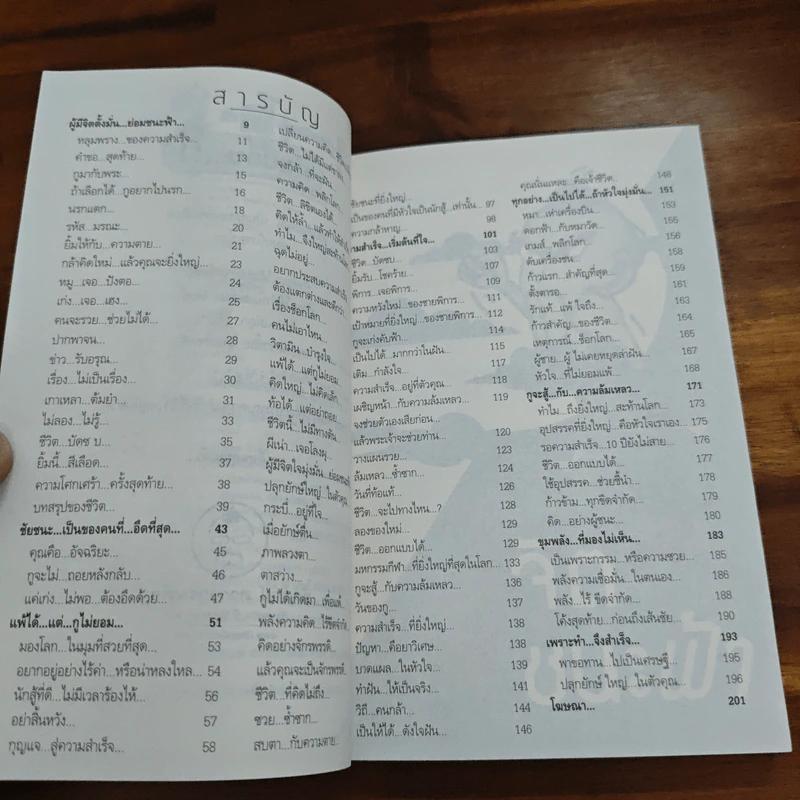 สารบัญ
ผู้มีจิตตั้งมั่น...ย่อมชนะฟ้า... 9
หลุมพราง...ของความสำเร็จ... 11
คำขอ...สุดท้าย... 13
กูมากับพระ... 15
ถ้าเลือกได้...กูอยากไปนรก... 16
นรกแตก... 18
รหัส...มรณะ... 20
ยิ้มให้กับ...ความตาย... 21
กล้าคิดใหม่...แล้วคุณจะยิ่งใหญ่... 23
หมู...เจอ...ปังตอ... 24
เก่ง...เจอ...เฮง... 25
คนจะรวย...ช่วยไม่ได้... 27
ปากพาจน... 28
ข่าว...รับอรุณ... 29
เรื่อง...ไม่เป็นเรื่อง... 30
เกาเหลา...ต้มยำ... 31
ไม่ลอง...ไม่รู้... 33
ชีวิต...บัดซบ... 35
ยิ้มนี้...สีเลือด... 37
ความโศกเศร้า...ครั้งสุดท้าย... 38
บทสรุปของชีวิต... 39
ชัยชนะ...เป็นของคนที่...อึดที่สุด... 43
คุณคือ...อัจฉริยะ... 45
กูจะไม่...ถอยหลังกลับ... 46
แค่เก่ง...ไม่พอ...ต้องอึดด้วย... 47
แพ้ได้...แต่...กูไม่ยอม... 51
มองโลก...ในมุมที่สวยที่สุด... 53
อยากอยู่อย่างไร้ค่า...หรือน่าหลงใหล... 54
นักสู้ที่ดี...ไม่มีเวลาร้องไห้... 56
อย่าสิ้นหวัง... 57
กุญแจ...สู่ความสำเร็จ... 58
เปลี่ยนความคิด...ชีวิต
ชีวิต...ไม่ได้มีแค่
จงกล้า...ที่จะฝัน...
ความคิด...พลิกโลก...
ชีวิต...ลิขิตเองได้...
คิดให้ล้ำ...แล้วทำให้
ทำไม...จึงใหญ่
ฉุดไม่อยู่...
อยากประสบความสำเร็จ
ต้องแตกต่างและดีกว่า
เรื่องช็อกโลก...
คนไม่เอาไหน...
วิตามิน...บำรุงใจ...
แพ้ได้...แต่กูไม่ยอม...
คิดใหญ่...ไม่คิดเล็ก...
ท้อได้...แต่อย่าถอย...
ชีวิตนี้...ไม่มีทางตัน...
ผีเน่า...เจอโลงผุ...
ผู้มีจิตใจมุ่งมั่น...ย่อมชนะ
ปลุกยักษ์ใหญ่...ในตัวคุณ
กระบี่...อยู่ที่ใจ...
เมื่อยักษ์ตื่น...
ภาพลวงตา...
ตาสว่าง...
กูไม่ได้เกิดมา...เพื่อแพ้...
พลังความคิด...ไร้ขีดจำกัด
คิดอย่างจักรพรรดิ...
แล้วคุณจะเป็นจักรพรรดิ...
ชีวิต...ที่คิดไม่ถึง...
ซวย...ซ้ำซาก...
สบตา...กับความตาย...
ชัยชนะที่ยิ่งใหญ่...
เป็นของคนที่มีหัวใจเป็นนักสู้...เท่านั้น... 97
ความกล้าหาญ 98
ามสำเร็จ...เริ่มต้นที่ใจ... 101
ชีวิต...บัดซบ 103
ยิ้มรับ...โชคร้าย 107
พิการ...เจอพิการ... 109
ความหวังใหม่...ของชายพิการ... 111
เป้าหมายที่ยิ่งใหญ่...ของชายพิการ... 112
กูจะเก่งคับฟ้า... 114
เป็นไปได้...มากกว่าในฝัน... 115
เติม...กำลังใจ... 117
ความสำเร็จ...อยู่ที่ตัวคุณ... 118
เผชิญหน้า...กับความล้มเหลว... 119
จงช่วยตัวเองเสียก่อน...
แล้วพระเจ้าจะช่วยท่าน... 120
วางแผนรวย... 123
ล้มเหลว...ซ้ำซาก... 125
วันที่ท้อแท้... 126
ชีวิต...จะไปทางไหน...? 128
ลองของใหม่... 129
ชีวิต...ออกแบบได้... 129
มหกรรมกีฬา...ที่ยิ่งใหญ่ที่สุดในโลก... 133
กูจะสู้...กับความล้มเหลว... 136
วันของกู... 137
ความสำเร็จ...ที่ยิ่งใหญ่... 137
ปัญหา...คือยาวิเศษ... 138
บาดแผล...ในหัวใจ... 139
ทำฝัน...ให้เป็นจริง... 141
วิถี...คนกล้า... 144
เป็นให้ได้...ดังใจฝัน... 146
คุณนั่นแหละ...คือเจ้าชีวิต... 148
ทุกอย่าง...เป็นไปได้...ถ้าหัวใจมุ่งมั่น... 151
หมา...เห่าเครื่องบิน... 153
ดอกฟ้า...กับหมาวัด... 155
เกมส์...พลิกโลก... 156
ดับเครื่องชน... 158
ก้าวแรก...สำคัญที่สุด... 159
ตั้งตารอ... 161
รักแท้...แพ้ ใจถึง... 163
ก้าวสำคัญ...ของชีวิต... 165
เหตุการณ์...ช็อกโลก... 166
ผู้ชาย...ผู้ ไม่เคยหยุดล่าฝัน... 167
หัวใจ...ที่ไม่ยอมแพ้... 168
กูจะสู้...กับ...ความล้มเหลว... 171
ทำไม...ถึงยิ่งใหญ่...สะท้านโลก... 173
อุปสรรคที่ยิ่งใหญ่...คือหัวใจเราเอง... 175
รอความสำเร็จ...10 ปียังไม่สาย... 176
ชีวิต...ออกแบบได้... 177
ใช้อุปสรรค...ช่วยชี้นำ... 178
ก้าวข้าม...ทุกขีดจำกัด... 179
คิด...อย่างผู้ชนะ... 180
ขุมพลัง...ที่มองไม่เห็น... 183
เป็นเพราะกรรม...หรือความซวย... 185
พลังความเชื่อมั่น...ในตนเอง... 186
พลัง...ไร้ ขีดจำกัด... 188
โค้งสุดท้าย...ก่อนถึงเส้นชัย... 190
เพราะทำ...จึงสำเร็จ... 193
พาขอทาน...ไปเป็นเศรษฐี... 195
ปลุกยักษ์ ใหญ่...ในตัวคุณ... 196
โฆษณา... 201